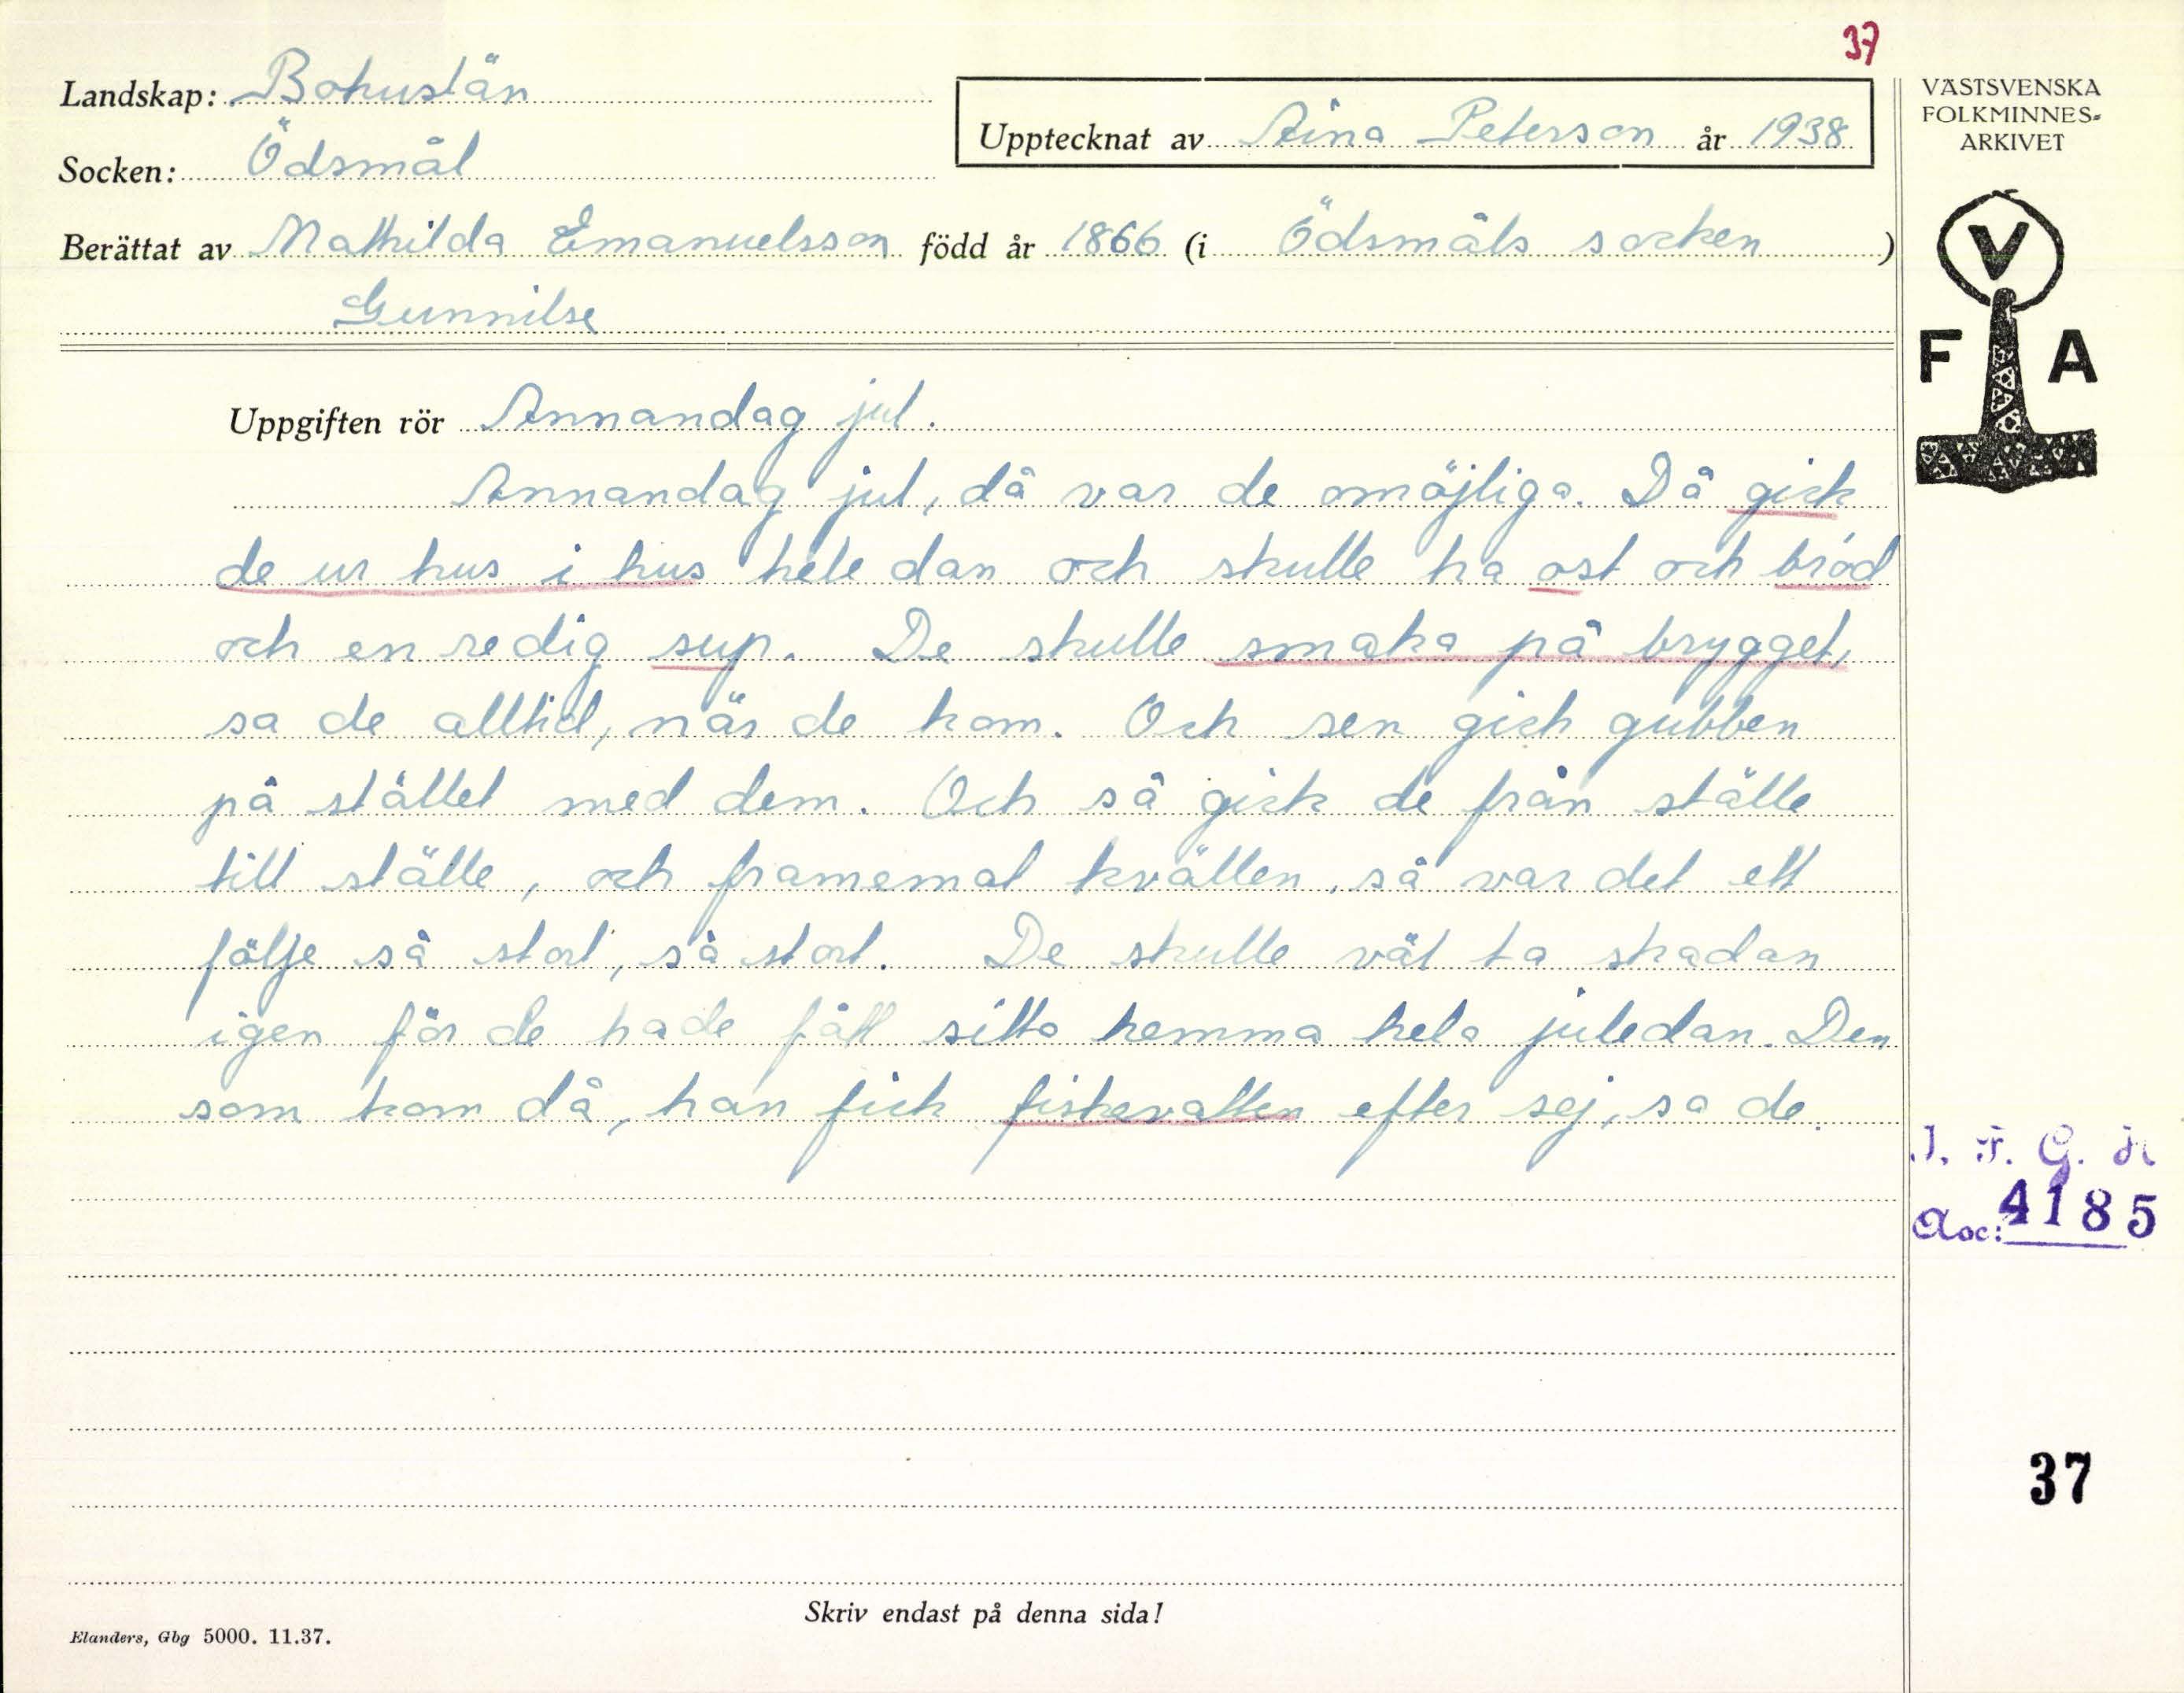 37
Landskap: Bohuslän
Socken: Ödsmål
Upptecknat av Aina Peterson år 1938
Berättat av Mathilda Emanuelsson född år 1866 (i Ödsmåls socken)
Gunnilse
VÄSTSVENSKA
FOLKMINNES-
ARKIVET
V
F A
Uppgiften rör Annandag jul.
Annandag jul, då var de omöjliga. Då gick
de ur hus i hus hele dan och skulle ha ost och bröd
och en redig sup. De skulle smaka på brygget,
sa de alltid, när de kom. Och sen gick gubben
på stället med dem. Och så gick de från ställe
till ställe, och framemot kvällen, så var det ett
följe så stort, så stort. De skulle väl ta skadan
igen för de hade fått sitta hemma hela juledan. Den
som kom då, han fick fiskevatten efter sej, sa de.
I. F. G. H
Acc: 4185
37
Skriv endast på denna sida!
Elanders, Gbg 5000. 11.37.